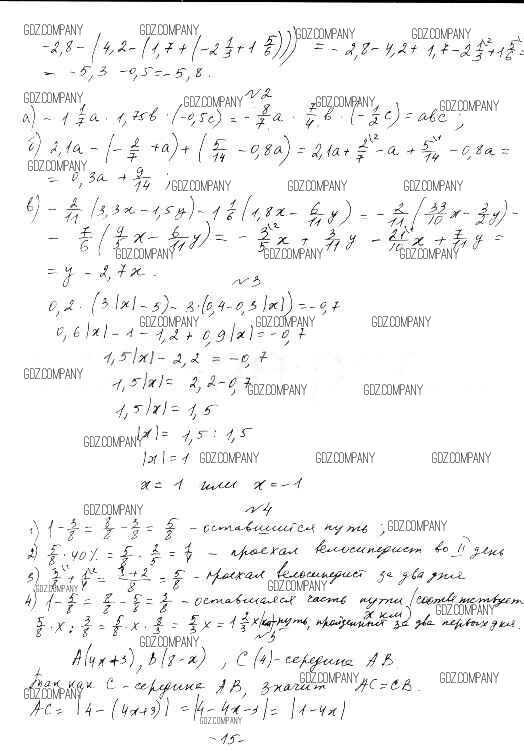 -2,8-(4,2-(1,7+(-2 1/3+1 5/6))) = -2,8-4,2+1,7-2 1/3+1 5/6=
= -5,3-0,5=-5,8.
№2
а) -1 1/7 a · 1,75b · (-0,5c) = -8/7 a · 7/4 b · (-1/2 c) = abc ;
б) 2,1a-(-2/7+a)+(5/14-0,8a) = 2,1a+2/7-a+5/14-0,8a=
= 0,3a+9/14 ;
в) -2/11 (3,3x-1,5y)-1 1/6 (1,8x-6/11 y) = -2/11 (33/10 x-3/2 y)-
-7/6 (9/5 x-6/11 y) = -3/5 x+3/11 y-21/10 x+7/11 y=
= y-2,7x.
№3
0,2·(3|x|-5)-3·(0,4-0,3|x|)=-0,7
0,6|x|-1-1,2+0,9|x|=-0,7
1,5|x|-2,2=-0,7
1,5|x|= 2,2-0,7
1,5|x|=1,5
|x|= 1,5:1,5
|x|=1
x=1 или x=-1
№4
1) 1-3/8=8/8-3/8=5/8 - оставшийся путь ;
2) 5/8·40%=5/8·2/5=1/4 - проехал велосипедист во II день
3) 3/8+1/4=3+2/8=5/8 - проехал велосипедист за два дня
4) 1-5/8=8/8-5/8=3/8 - оставшаяся часть пути (соответствует x км)
5/8·x:3/8=5/8·x·8/3=5/3 x=1 2/3 x(км)-путь, пройденный за два первых дня.
№5
A(4x+3), B(8-x), C(4)-середина AB.
Так как C-середина AB, значит AC=CB.
AC= |4-(4x+3)|=|4-4x-3|=|1-4x|
-15-
GDZ.COMPANY